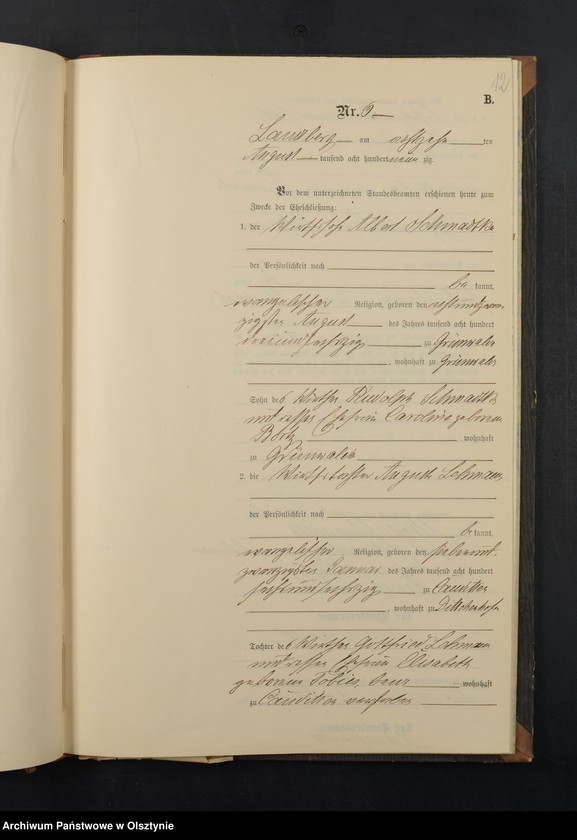 12
B.
Nr. 6
Landsberg am achtzehnten
August tausend acht hundert neunzig.
Vor dem unterzeichneten Standesbeamten erschienen heute zum
Zwecke der Eheschließung:
1. der Wirthssohn Albert Schmadtke
der Persönlichkeit nach
bekannt,
evangelischer Religion, geboren den
zigsten August des Jahres tausend acht hundert
dreiundsechzig zu Grünwalde
, wohnhaft zu Grünwalde
Sohn des Wirths Rudolph Schmadtke
und dessen Ehefrau Caroline geborene
wohnhaft
zu Grünwalde
2. die Wirthstochter Auguste Lehmann
der Persönlichkeit nach
bekannt,
evangelischer Religion, geboren den siebenund-
zwanzigsten Januar des Jahres tausend acht hundert
sechsundsechzig zu Canditten
, wohnhaft zu
Tochter des Wirths Gottfried Lehmann
und dessen Ehefrau Elisabeth
geborene Tobies, wohnhaft
zu Canditten verstorben
Archiwum Państwowe w Olsztynie